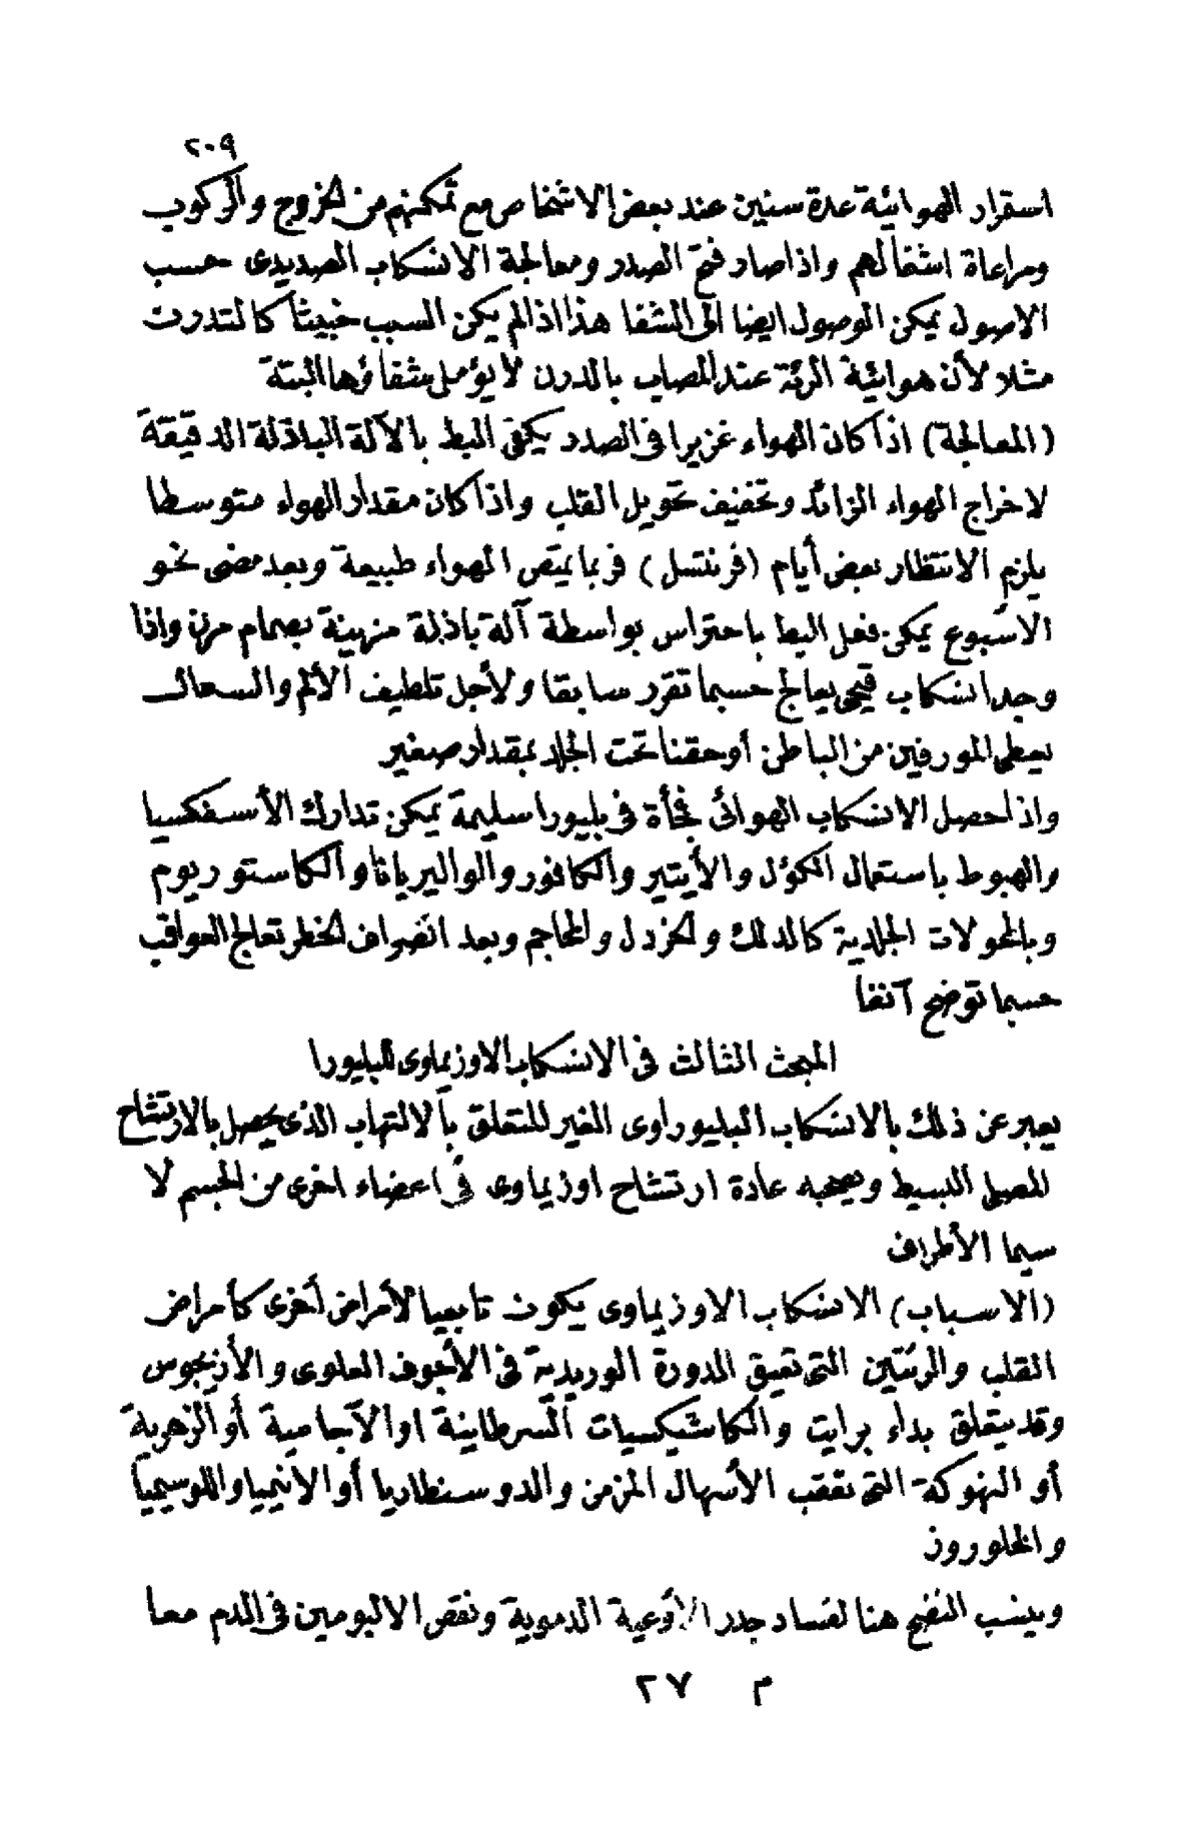 ٢٠٩
استقرار الهوائية عدة سنين عند بعض الاشخاص مع تمكنهم من الخروج والركوب
ومراعاة اشغالهم واذا صار فتح الصدر ومعالجة الانسكاب الصديدى حسب
الاصول يمكن الوصول ايضا الى الشفا هذا اذا لم يكن السبب خبيثا كالتدرن
مثلا لأن هوائية الرئة عند المصاب بالدرن لا يؤمل شفاؤها البتة
(المعالجة) اذا كان الهواء غزيرا فى الصدر يكفى البط بالآلة الباذلة الدقيقة
لاخراج الهواء الزائد وتخفيف تحويل القلب واذا كان مقدار الهواء متوسطا
يلزم الانتظار بعض أيام (فرنتسل) فربما يمتص الهواء طبيعة وبعد مضى نحو
الاسبوع يمكن فعل البط باحتراس بواسطة آلة باذلة مزينة بصمام مرن واذا
وجد انسكاب قيحى يعالج حسبما تقرر سابقا ولأجل تلطيف الألم والسعال
يعطى المورفين من الباطن أو حقنا تحت الجلد بمقدار صغير
واذا حصل الانسكاب الهوائى فجأة فى بليورا سليمة يمكن تدارك الأسفكسيا
والهبوط باستعمال الكؤل والأيتير والكافور والواليريانا والكاستوريوم
وبالمحولات الجلدية كالدلك والخردل والمحاجم وبعد انصراف الخطر تعالج العواقب
حسبما توضح آنفا
المبحث الثالث فى الانسكاب الاوزيماوى للبليورا
يعبر عن ذلك بالانسكاب البليوراوى الغير المتعلق بالالتهاب الذى يحصل بالارتشاح
المصلى البسيط ويصحبه عادة ارتشاح اوزيماوى فى اعضاء اخرى من الجسم لا
سيما الأطراف
(الاسباب) الانسكاب الاوزيماوى يكون تابعيا لأمراض أخرى كأمراض
القلب والرئتين التى تعيق الدورة الوريدية فى الأجوف العلوى والأزيجوس
وقد يتعلق بداء برايت والكاشيكسيات السرطانية او الآجامية أو الزهرية
أو النهوكة التى تعقب الأسهال المزمن والدوسنطاريا أو الانيميا واللوسيميا
والخلوروز
وينسب النضح هنا لفساد جدر الاوعية الدموية ونقص الالبومين فى الدم معا
م ٢٧